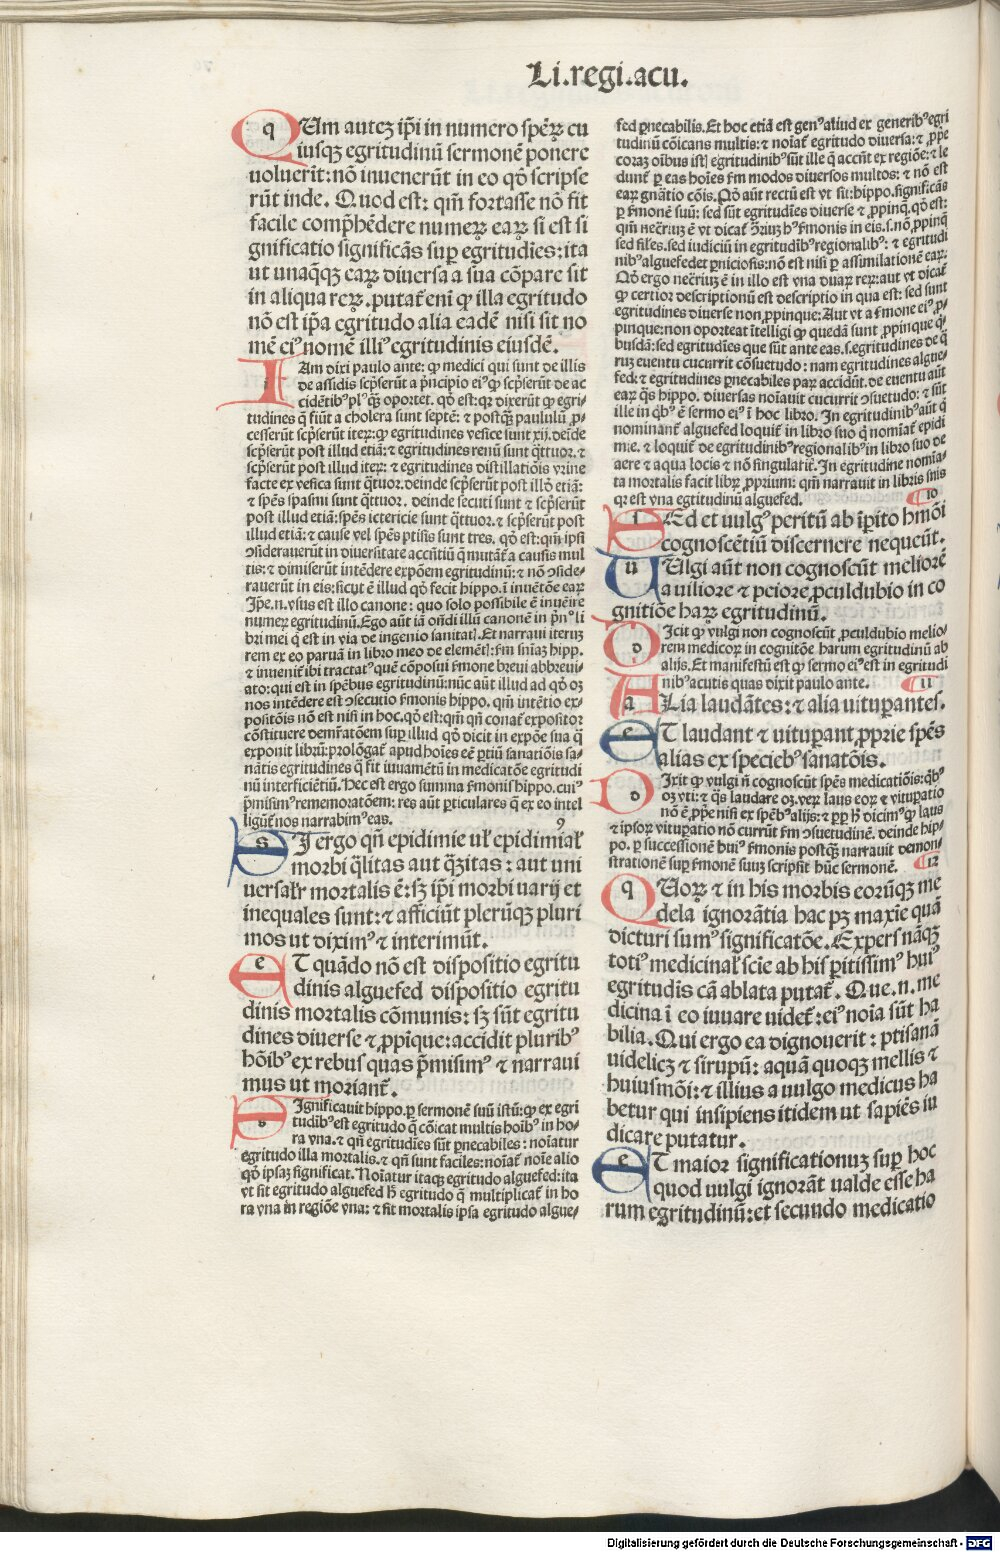 Li.regi.acu.
QUm auteꝫ ip̄i in numero spēꝝ cu
iusqꝫ egritudinū sermonē ponere
voluerīt: nō invenerūt in eo qđ scripse
rūt inde. Quod est: qm̄ fortasse nō fit
facile comp̄hēdere numeꝝ eaꝝ si est si
gnificatio significās suꝑ egritudīes: ita
ut unaq̄qꝫ eaꝝ diversa a sua cōpare sit
in aliqua reꝝ. putat̄ enī ꝙ illa egritudo
nō est ip̄a egritudo alia eadē nisi sit no
mē eiꝰ nomē illiꝰ egritudinis eiusdē.
IAm dixi paulo ante: ꝙ medici qui sunt de illis
de assidis scp̄serūt a p̄ncipio eiꝰ ꝙ scp̄serūt de ac
cidētibꝰ plꝰ q̄ꝫ oportet. qđ est: qꝛ dixerūt ꝙ egri-
tudines q̄ fiūt a cholera sunt septē: ⁊ postq̄ꝫ paululū ꝓ-
cesserūt scp̄serūt iteꝝ: ꝙ egritudines vesice sunt xij. deīde
scp̄serūt post illud etiā: ⁊ egritudines renū sunt q̄ttuor. ⁊
scp̄serūt post illud iteꝝ: ⁊ egritudines distillatiōis vrine
facte ex vesica sunt q̄tuor. deinde scp̄serūt post illđ etiā:
⁊ spēs spasmi sunt q̄ttuor. deinde secuti sunt ⁊ scp̄serūt
post illud etiā: spēs ictericie sunt q̄ttuor. ⁊ scp̄serūt post
illud etiā: ⁊ cause vel spēs ptisis sunt tres. qđ est: qm̄ ipsi
ꝯsideraverūt in diversitate accn̄tiū q̄ mutāt̄ a causis mul
tis: ⁊ dimiserūt intēdere expōem egritudinū: ⁊ nō ꝯside-
raverūt in eis: sicut ē illud qđ fecit hippo. ī invētōe eaꝝ
Ip̄e.n. vsus est illo canone: quo solo possibile ē invēire
numeꝝ egritudinū. Ego aūt iā on̄di illū canonē in p̄nꝰ li
bri mei q̄ est in via de ingenio sanitat̄. Et narravi iteruꝫ
rem ex eo parvā in libro meo de elemēt̄: fm sniaꝫ hipp.
⁊ invenit̄ ibi tractatꝰ quē cōposui sermone brevi abbrevi-
ato: qui est in spēbus egritudinū: nūc aūt illud ad qđ oꝫ
nos intēdere est ꝯsecutio sermonis hippo. qm̄ intētio ex-
positōis nō est nisi in hoc. qđ est: qm̄ qn̄ conat̄ expositor
cōstituere demr̄atōem suꝑ illud qđ dicit in expōe sua q̄
exponit librū: prolōgat̄ apud hoīes eē ꝑtiū sanatiōis sa-
nātis egritudines q̄ fit iuvamētū in medicatōe egritudi
nū interficiētiū. Hec est ergo summa sermōis hippo. cuiꝰ
p̄misimꝰ rememoratōem: res aūt ꝑticulares q̄ ex eo intel
ligūt̄ nos narrabimꝰ eas. 9
SI ergo qn̄ epidimie uł epidimiał
morbi q̄litas aut q̄ꝫitas: aut uni
versał̄r mortalis ē: sꝫ ip̄i morbi varij et
inequales sunt: ⁊ afficiūt plerūqꝫ pluri
mos ut diximꝰ ⁊ interimūt.
ET quādo nō est dispositio egritu
dinis alguefed dispositio egritu
dinis mortalis cōmunis: sꝫ sūt egritu
dines diverse ⁊ ꝓpīque: accidit pluribꝰ
hōibꝰ ex rebus quas p̄misimꝰ ⁊ narravi
mus ut moriant̄.
SIgnificavit hippo. ꝑ sermonē suū istū: ꝙ ex egri
tudībꝰ est egritudo q̄ cōicat multis hoībꝰ in ho-
ra vna. ⁊ qn̄ egritudīes sūt ꝑnecabiles: noīatur
egritudo illa mortalis. ⁊ qn̄ sunt faciles: noīat̄ noīe alio
qđ ipsaꝫ significat. Noīatur itaqꝫ egritudo alguefed: ita
vt sit egritudo alguefed h̄ egritudo q̄ multiplicat̄ in ho
ra vna in regiōe vna: ⁊ fit mortalis ipsa egritudo algue-
fed ꝑnecabilis. Et hoc etiā est genꝰ aliud ex generibꝰ egri
tudinū cōicans multis: ⁊ noīat̄ egritudo diversa: ⁊ ꝓp̄e
coraꝫ oībus ist̄ egritudinibꝰ sūt ille q̄ accn̄t ex regiōe: ⁊ le
dunt̄ ꝑ eas hoīes fm modos diversos multos: ⁊ nō est
eaꝝ gn̄atio cōis. Nō aūt rectū est vt sit: hippo. significās
ꝑ sermonē suū: sed sūt egritudīes diverse ⁊ ꝓpinq̄. qđ est:
qm̄ nec̄riuꝫ ē vt dicat̄ ꝯr̄iuꝫ hꝰ sermonis in eis. s. nō ꝓpinq̄
sed siles. sed iudiciū in egritudībꝰ regionalibꝰ: ⁊ egritudi
nibꝰ alguefedet ꝑniciosis: nō est nisi ꝑ assimilationē eaꝝ.
Qđ ergo nec̄riuꝫ ē in illo est vna duaꝝ reꝝ: aut vt dicat̄
ꝙ certior descriptionū est descriptio in qua est: sed sunt
egritudines diverse non ꝓpinque: Aut vt a sermone eiꝰ ꝓ-
pinque: non oporteat ītelligi ꝙ quedā sunt ꝓpinque q̄-
busdā: sed egritudines que sūt ante eas. s. egritudines de q̄
ruꝫ eventu cucurrit cōsuetudo: nam egritudines algue-
fed: ⁊ egritudines ꝑnecabiles paꝝ accidūt. de eventu aūt
eaꝝ q̄s hippo. diversas noīavit cucurrit ꝯsuetudo: ⁊ sūt
ille in qbꝰ ē sermo eiꝰ ī hoc libro. In egritudinibꝰ aūt q̄
nominant̄ alguefed loquit̄ in libro suo q̄ noīat̄ epidi
mie. ⁊ loquit̄ de egritudinibꝰ regionalibꝰ in libro suo de
aere ⁊ aqua locis ⁊ nō singulatiꝫ. In egritudine nomīa-
ta mortalis facit libꝝ ꝓprium: qm̄ narravit in libris snis
qꝛ est vna egtitudinū alguefed. 10
SEd et vulgꝰ peritū ab ip̄ito hmōi
cognoscētiū discernere nequeūt.
VUlgi aūt non cognoscūt meliorē
a viliore ⁊ peiore ꝓculdubio in co
gnitiōe haꝝ egritudinū.
DIcit ꝙ vulgi non cognoscūt ꝓculdubio melio-
rem medicoꝝ in cognitiōe harum egritudinū ab
alijs. Et manifestū est ꝙ sermo eiꝰ est in egritudi
nibꝰ acutis quas dixit paulo ante. 11
ALia laudātes: ⁊ alia vituꝑantes.
ET laudant ⁊ vituꝑant ꝓprie spēs
alias ex speciebꝰ sanatōis.
DIxit ꝙ vulgi n̄ cognoscūt spēs medicatiōis: qbꝰ
oꝫ vti: ⁊ q̄s laudare oꝫ. veꝝ laus eoꝝ ⁊ vituꝑatio
nō ē ꝓp̄e nisi ex spēbꝰ alijs: ⁊ ꝑꝑ h̄ dicimꝰ ꝙ laus
⁊ ipsoꝝ vituꝑatio nō currūt fm ꝯsuetudinē. deinde hip-
po. ꝑ successionē huiꝰ sermonis postq̄ꝫ narravit demon-
strationē suꝑ sermonē suuꝫ scripsit hūc sermonē. 12
QUoꝝ ⁊ in his morbis eorūqꝫ me
dela ignorātia hac pꝫ maxīe quā
dicturi sumꝰ significatōe. Expers nāqꝫ
totiꝰ medicinał scīe ab his ꝑitissimꝰ huiꝰ
egritudīs cā ablata putat̄. Que.n. me
dicina ī eo iuvare videt̄: eiꝰ noīa sūt ha
bilia. Qui ergo ea dignoverit: ptisanā
videlicꝫ ⁊ sirupū: aquā quoqꝫ mellis ⁊
huiusmōi: ⁊ illius a vulgo medicus ha
betur qui insipiens itidem ut sapiēs iu
dicare putatur.
ET maior significationuꝫ suꝑ hoc
quod vulgi ignorāt valde esse ha
rum egritudinū: et secundo medicatio
Digitalisierung gefördert durch die Deutsche Forschungsgemeinschaft - DFG